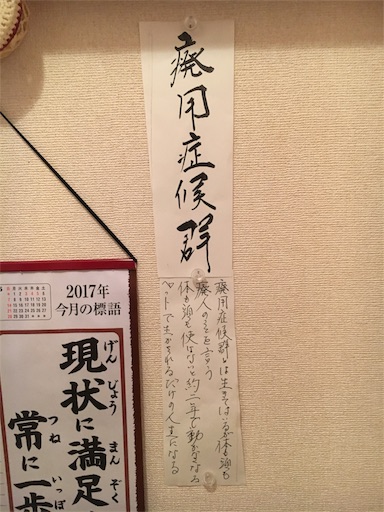 廃用症候群
廃用症候群とは生きてはいるが体も頭も
廃人のことを言う
体も頭も使はないと約二年で動かなくなる
ベットで生かされるだけの人生になる
2017年
今月の標語
げんじょう まんぞく
現状に満足
つね いっぽ
常に一歩